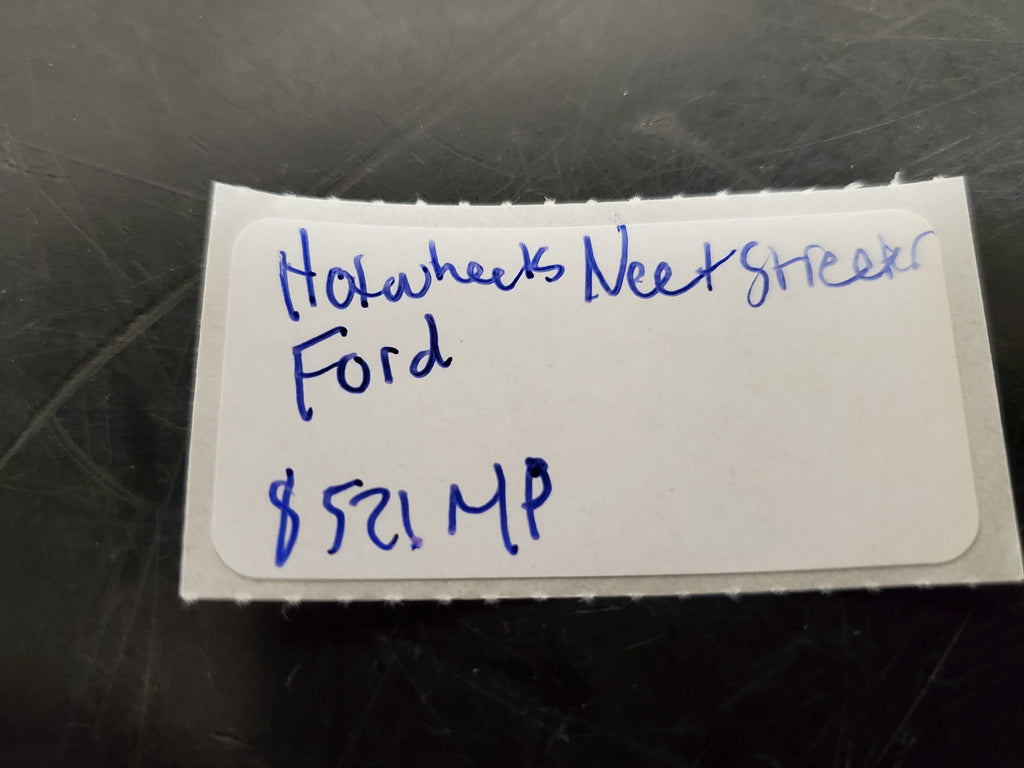 Hotwheels Neet Streeter
Ford
$521 MP